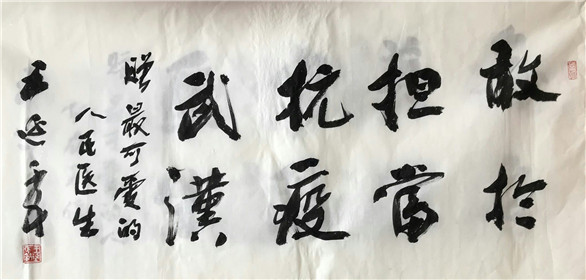 敢於
担當
抗疫
武漢
贈最可愛的
人民医生